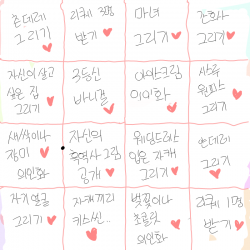 츤데레
그리기
리퀘 3명
받기
마녀
그리기
간호사
그리기
자신이 살고
싶은 집
그리기
3등신
바니걸
아이스크림
의인화
시스루
원피스
그리기
새싹이나
장미
의인화
자신의
흑역사 그림
공개
웨딩드레스
입은 자캐
그리기
얀데레
그리기
자기얼굴
그리기
자캐끼리
키스씬...
벚꽃이나
초콜릿
의인화
리퀘 1명
받기